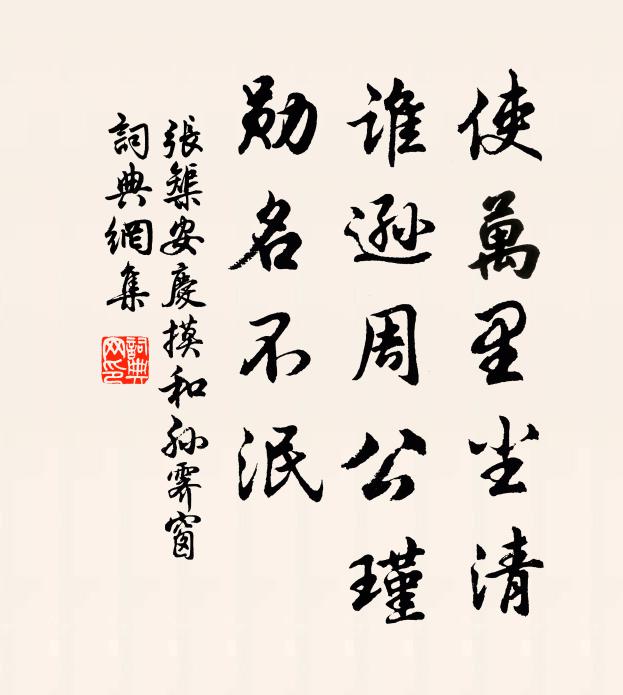 使萬里尘清
谁遜周公瑾
勋名不泯
張榘安慶摸和孙霁窗
詞典網集
詞典網印